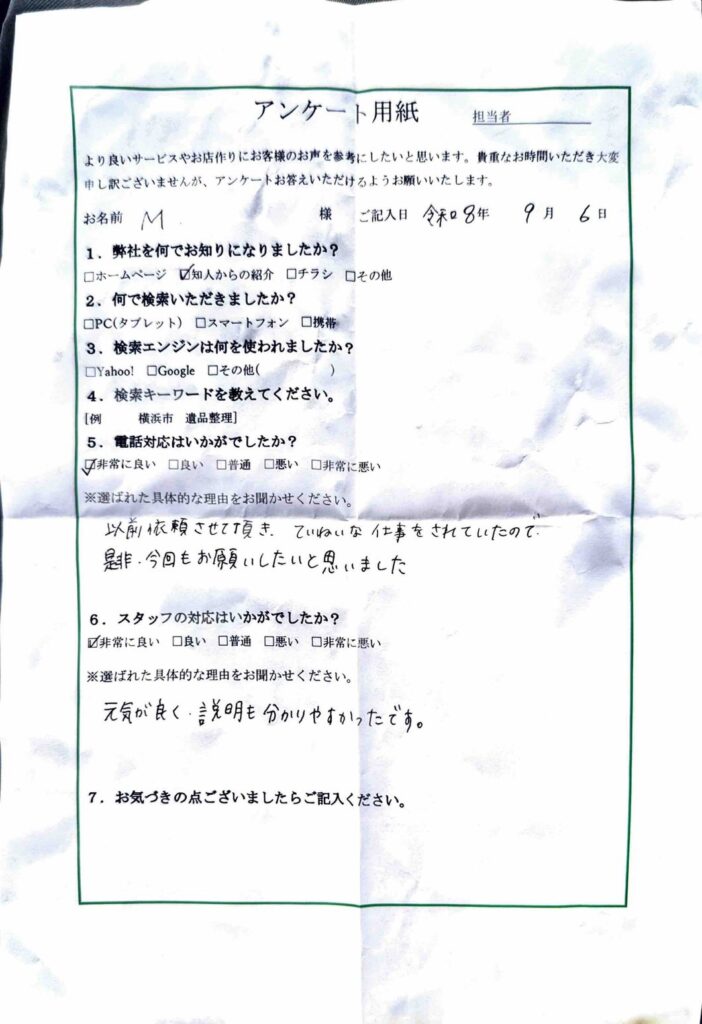 アンケート用紙
担当者
より良いサービスやお店作りにお客様のお声を参考にしたいと思います。貴重なお時間いただき大変
申し訳ございませんが、アンケートお答えいただけるようお願いいたします。
お名前 M 様 ご記入日 令和8年 9月 6日
1．弊社を何でお知りになりましたか？
□ホームページ ☑知人からの紹介 □チラシ □その他
2．何で検索いただきましたか？
□PC(タブレット) □スマートフォン □携帯
3．検索エンジンは何を使われましたか？
□Yahoo! □Google □その他( )
4．検索キーワードを教えてください。
[例 横浜市 遺品整理]
5．電話対応はいかがでしたか？
☑非常に良い □良い □普通 □悪い □非常に悪い
※選ばれた具体的な理由をお聞かせください。
以前依頼させて頂き、ていねいな仕事をされていたので
是非、今回もお願いしたいと思いました
6．スタッフの対応はいかがでしたか？
☑非常に良い □良い □普通 □悪い □非常に悪い
※選ばれた具体的な理由をお聞かせください。
元気が良く、説明も分かりやすかったです。
7．お気づきの点ございましたらご記入ください。